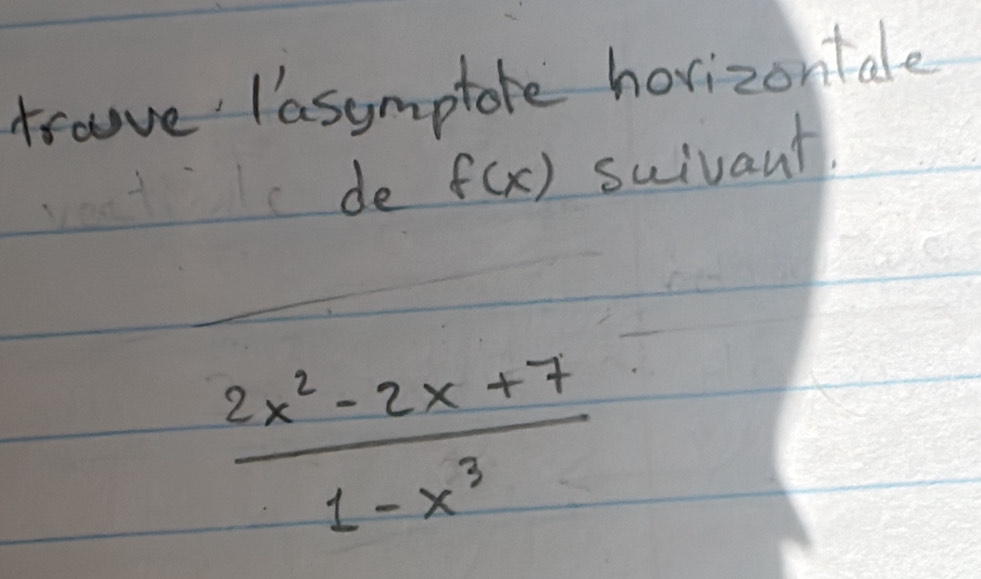 trouve l'asymptote horizontale
de f(x) suivant.
2x² - 2x + 7
1 - x³